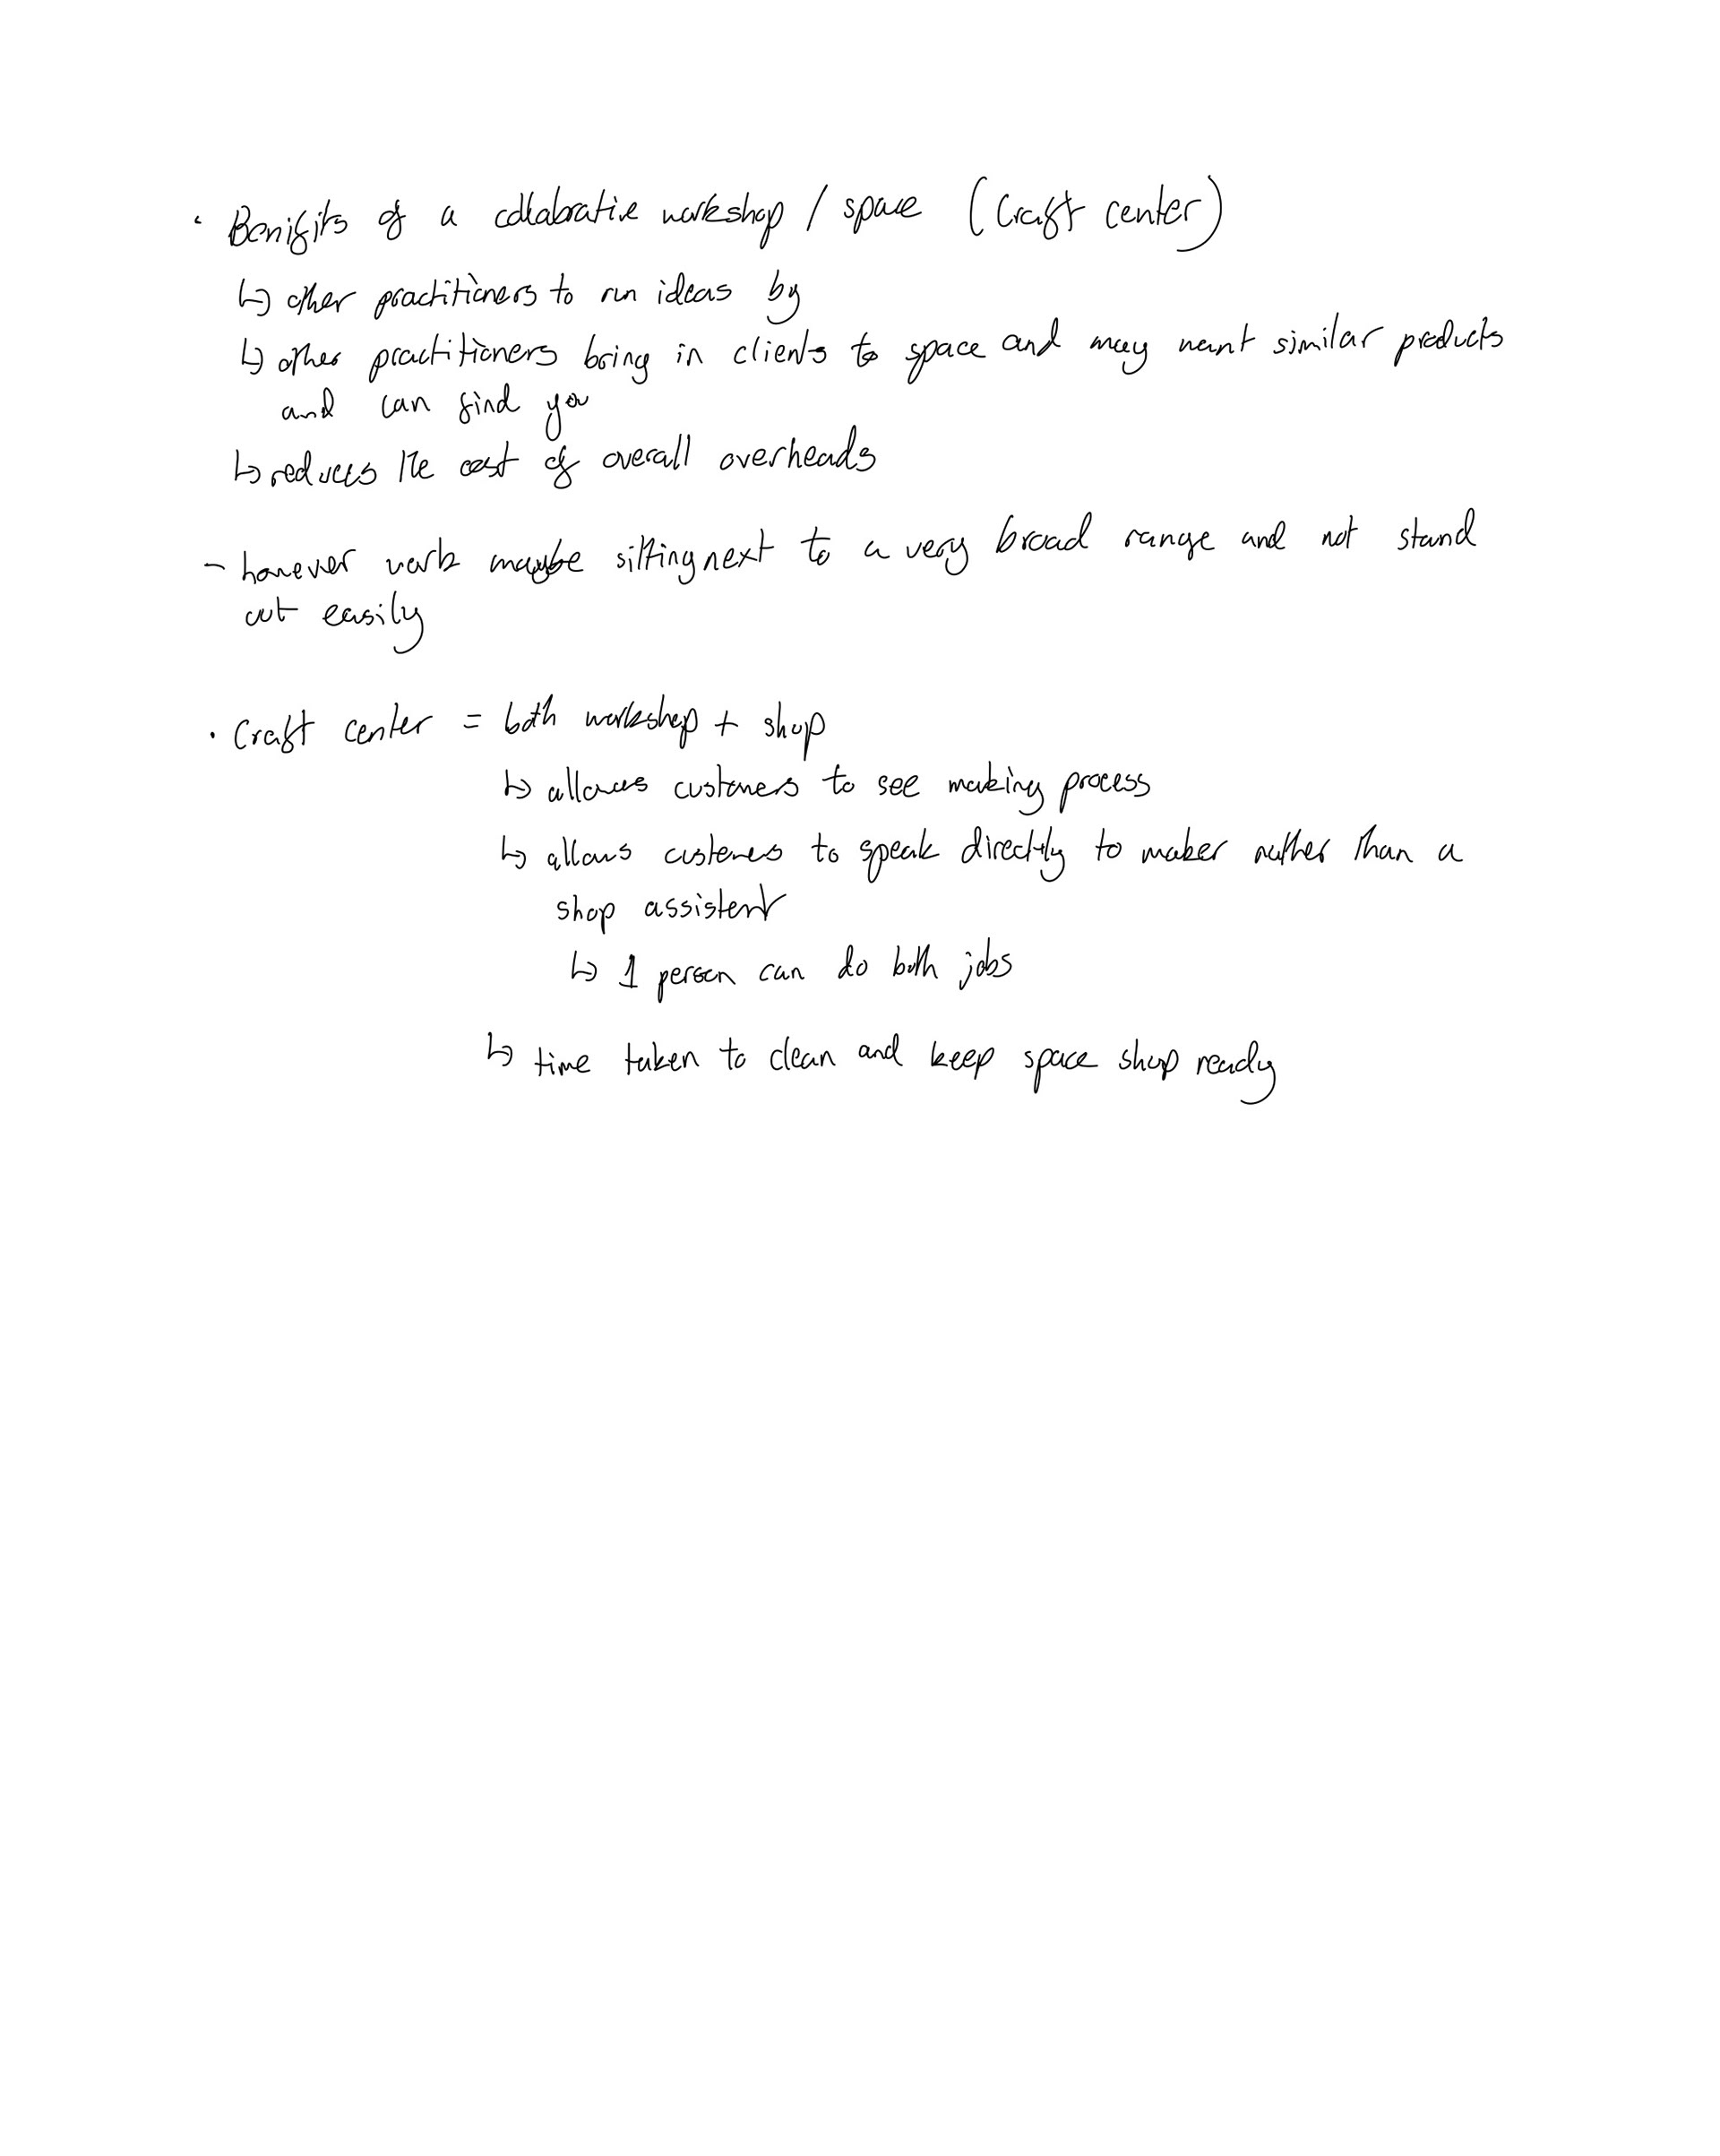 · Benifits of a collabrative workshop / space (Craft center)
↳ other practitioners to run ideas by
↳ other practitioners bring in clients to space and may want similar products
and can find you
↳ reduces the cost of overall overheads
- however work maybe sitting next to a very broad range and not stand
out easily
· Craft center = both workshop + shop
↳ allowes customers to see making process
↳ allows customers to speak directly to maker rather than a
shop assistent
↳ 1 person can do both jobs
↳ time taken to clean and keep space shop ready